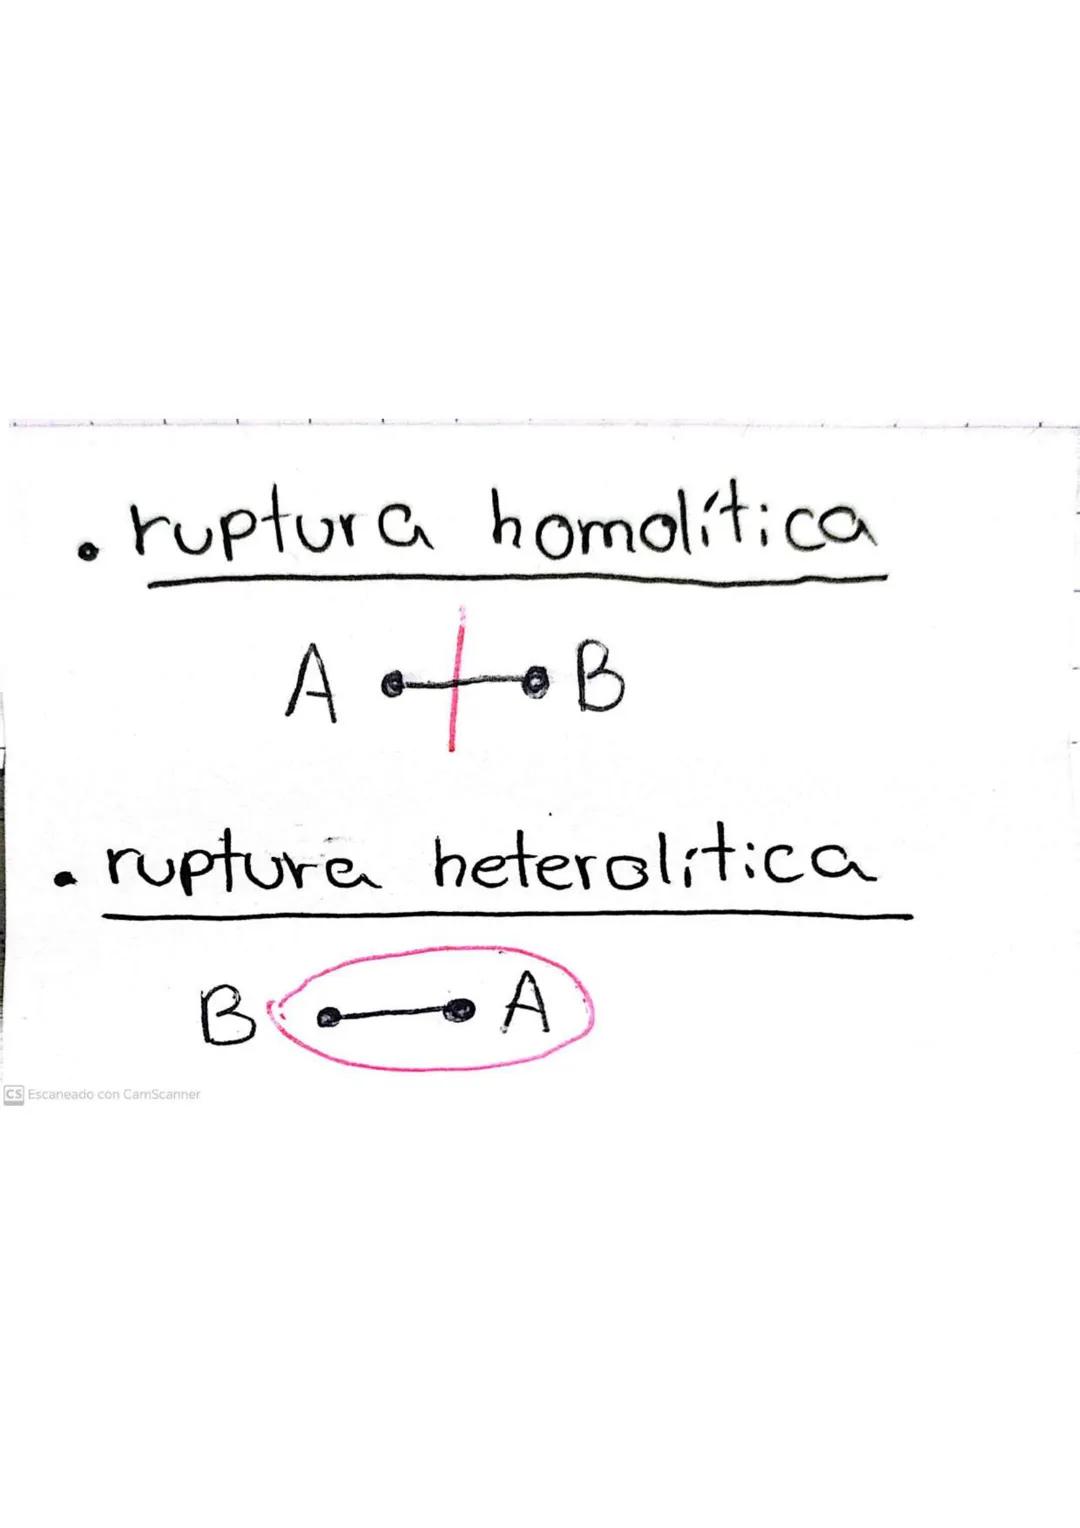 . ruptura homolítica
A B
. ruptura heterolítica
B A
CS Escaneado con CamScanner